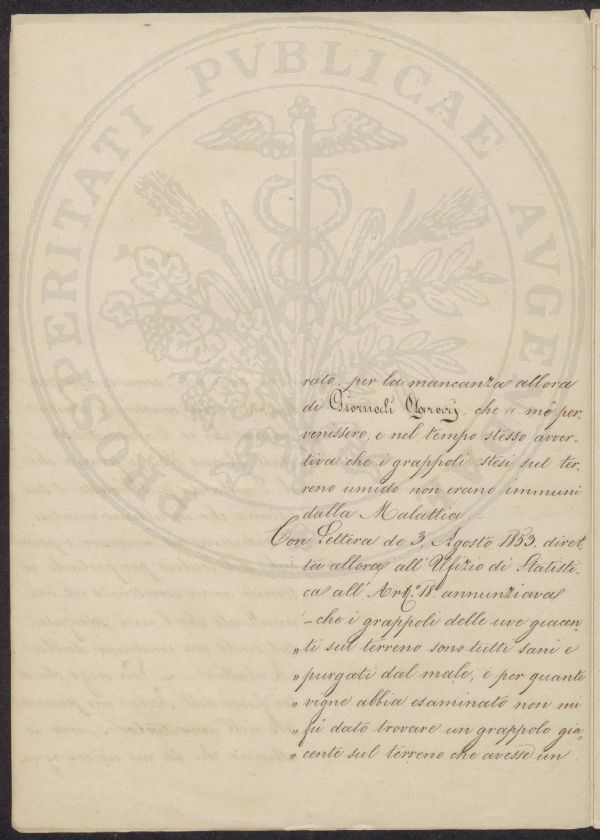 PROSPERITATI PVBLICAE AVGEN
rato, per la mancanza allora
di Giornali Agrarj, che a me per-
venissero, e nel tempo stesso avver-
tiva che i grappoli stesi sul ter-
reno umido non erano immuni
dalla Malattia. –
Con Lettera de 3, Agosto 1853 diret-
ta allora all' Ufizio di Statisti-
ca all' Art.º 18. annunziava
– che i grappoli delle uve giacen-
„ ti sul terreno sono tutti sani e
„ purgati dal male, e per quante
„ vigne abbia esaminato non mi
„ fù dato trovare un grappolo gia-
„ cente sul terreno che avesse un